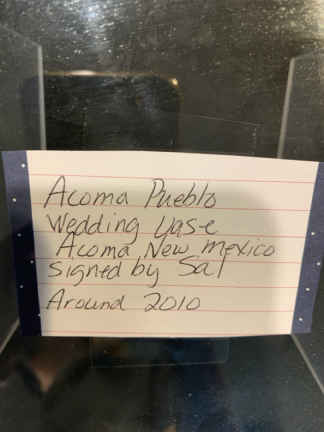 Acoma Pueblo
Wedding Vase
Acoma New mexico
signed by Sal
Around 2010